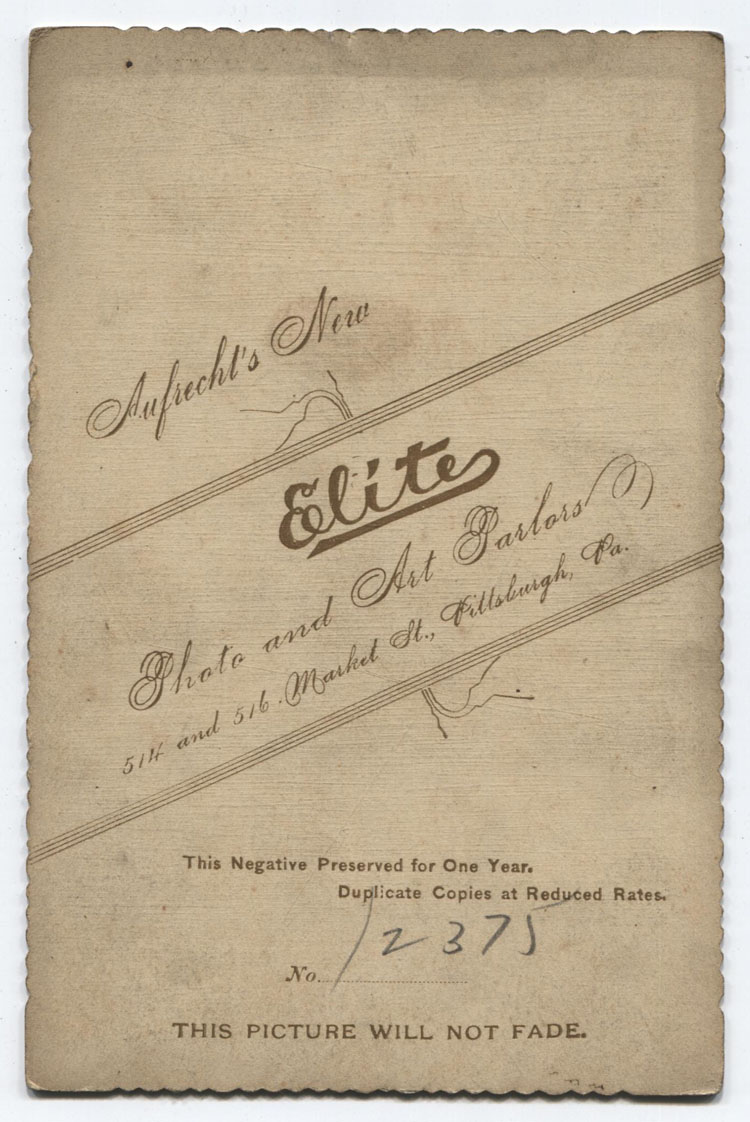 Aufrecht's New
Elite
Photo and Art Parlors
514 and 516. Market St., Pittsburgh, Pa.
This Negative Preserved for One Year.
Duplicate Copies at Reduced Rates.
No. 12375
THIS PICTURE WILL NOT FADE.